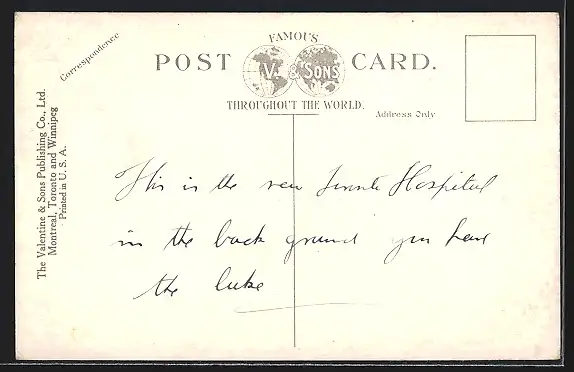 FAMOUS
POST CARD.
V. & SONS
THROUGHOUT THE WORLD.
Correspondence
Address Only
The Valentine & Sons Publishing Co., Ltd.
Montreal, Toronto and Winnipeg
Printed in U. S. A.
This is the new Hospital
in the back ground you have
the lake